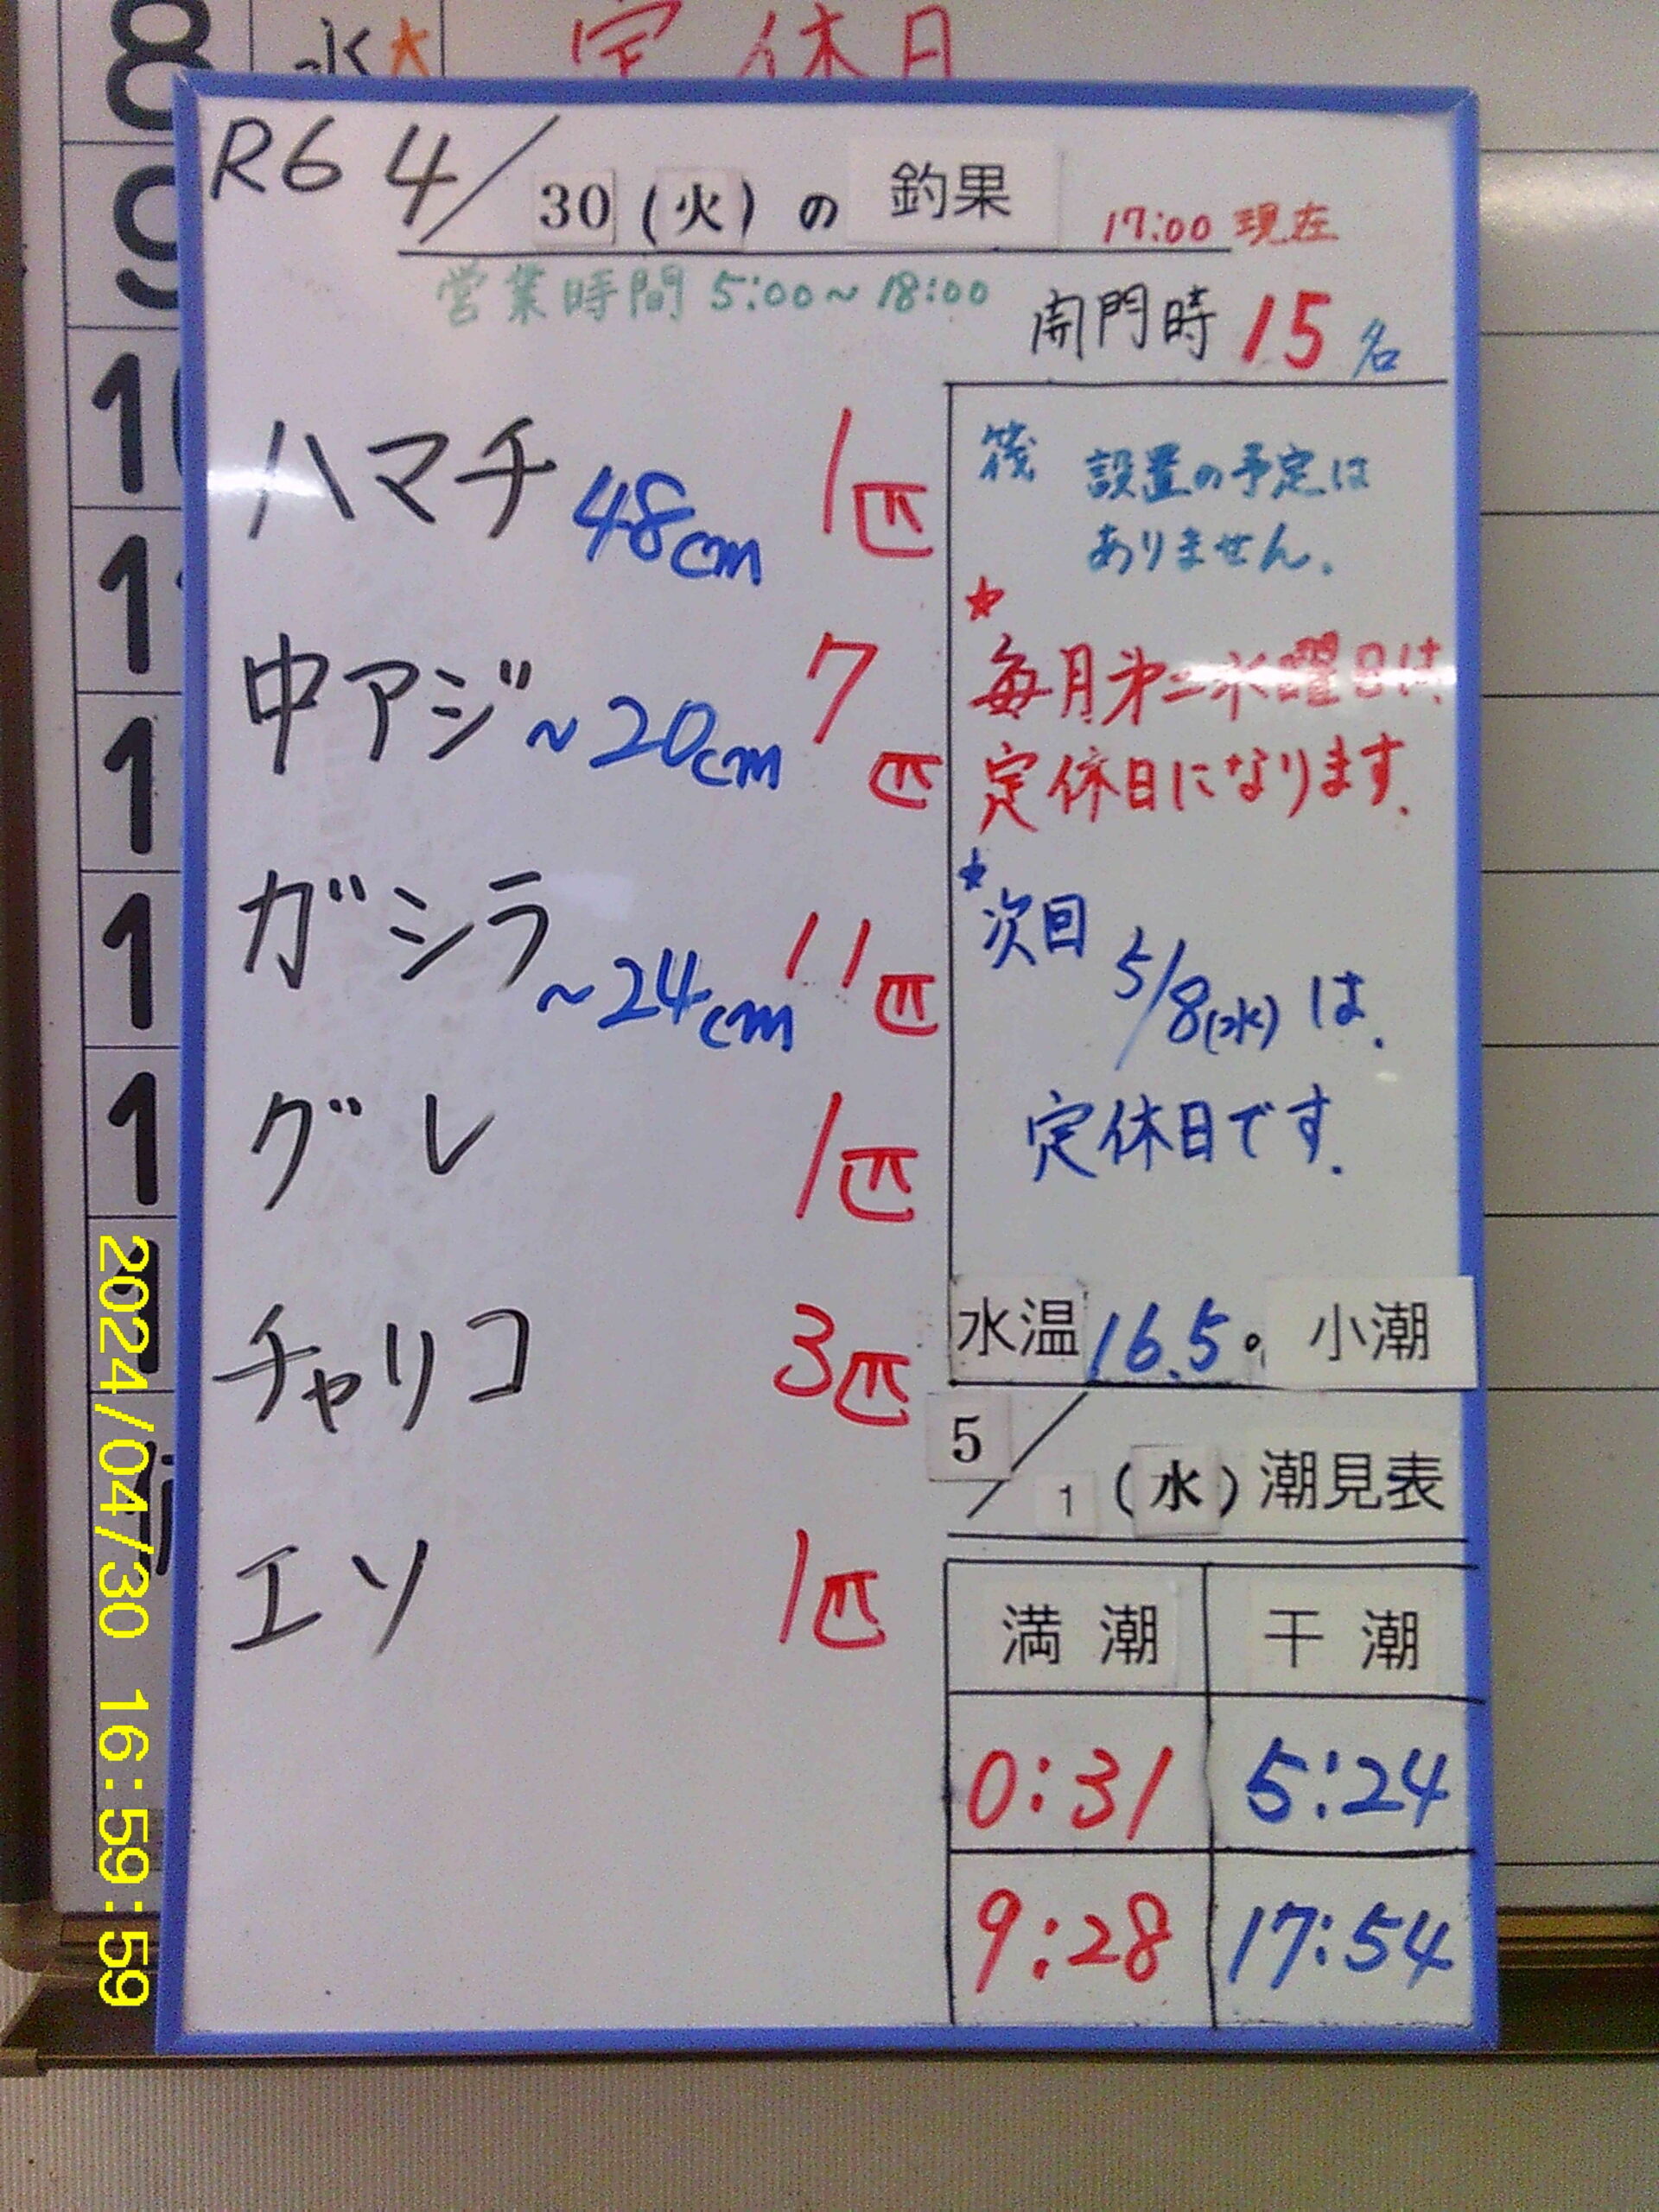 8 水★ 定休日
R6 4/30(火)の 釣果 17:00 現在
営業時間 5:00~18:00
開門時 15名
ハマチ 48cm 1匹
中アジ ~20cm 7匹
ガシラ ~24cm 11匹
グレ 1匹
チャリコ 3匹
エソ 1匹
筏 設置の予定は
ありません.
★
毎月第二水曜日は
定休日になります.
★次回 5/8(水)は.
定休日です.
水温 16.5° 小潮
5/1(水)潮見表
満潮 干潮
0:31 5:24
9:28 17:54
9
1
1
1
1
1
2024/04/30 16:59:59